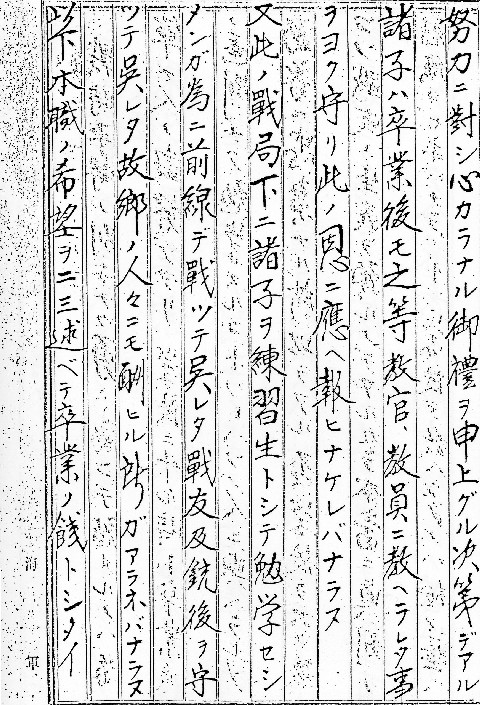 努力ニ對シ心カラナル御禮ヲ申上ゲル次第デアル
諸子ハ卒業後モ之等教官、教員ニ教ヘラレタ事
ヲヨク守リ此ノ恩ニ應ヘ報ヒナケレバナラヌ
又此ノ戰局下ニ諸子ヲ練習生トシテ勉学セシ
メンガ為ニ前線デ戰ツテ呉レタ戰友及銃後ヲ守
ツテ呉レタ故郷ノ人々ニモ酬ヒル所ガアラネバナラヌ
以下本職ノ希望ヲ二三述ベテ卒業ノ餞トシタイ
海軍